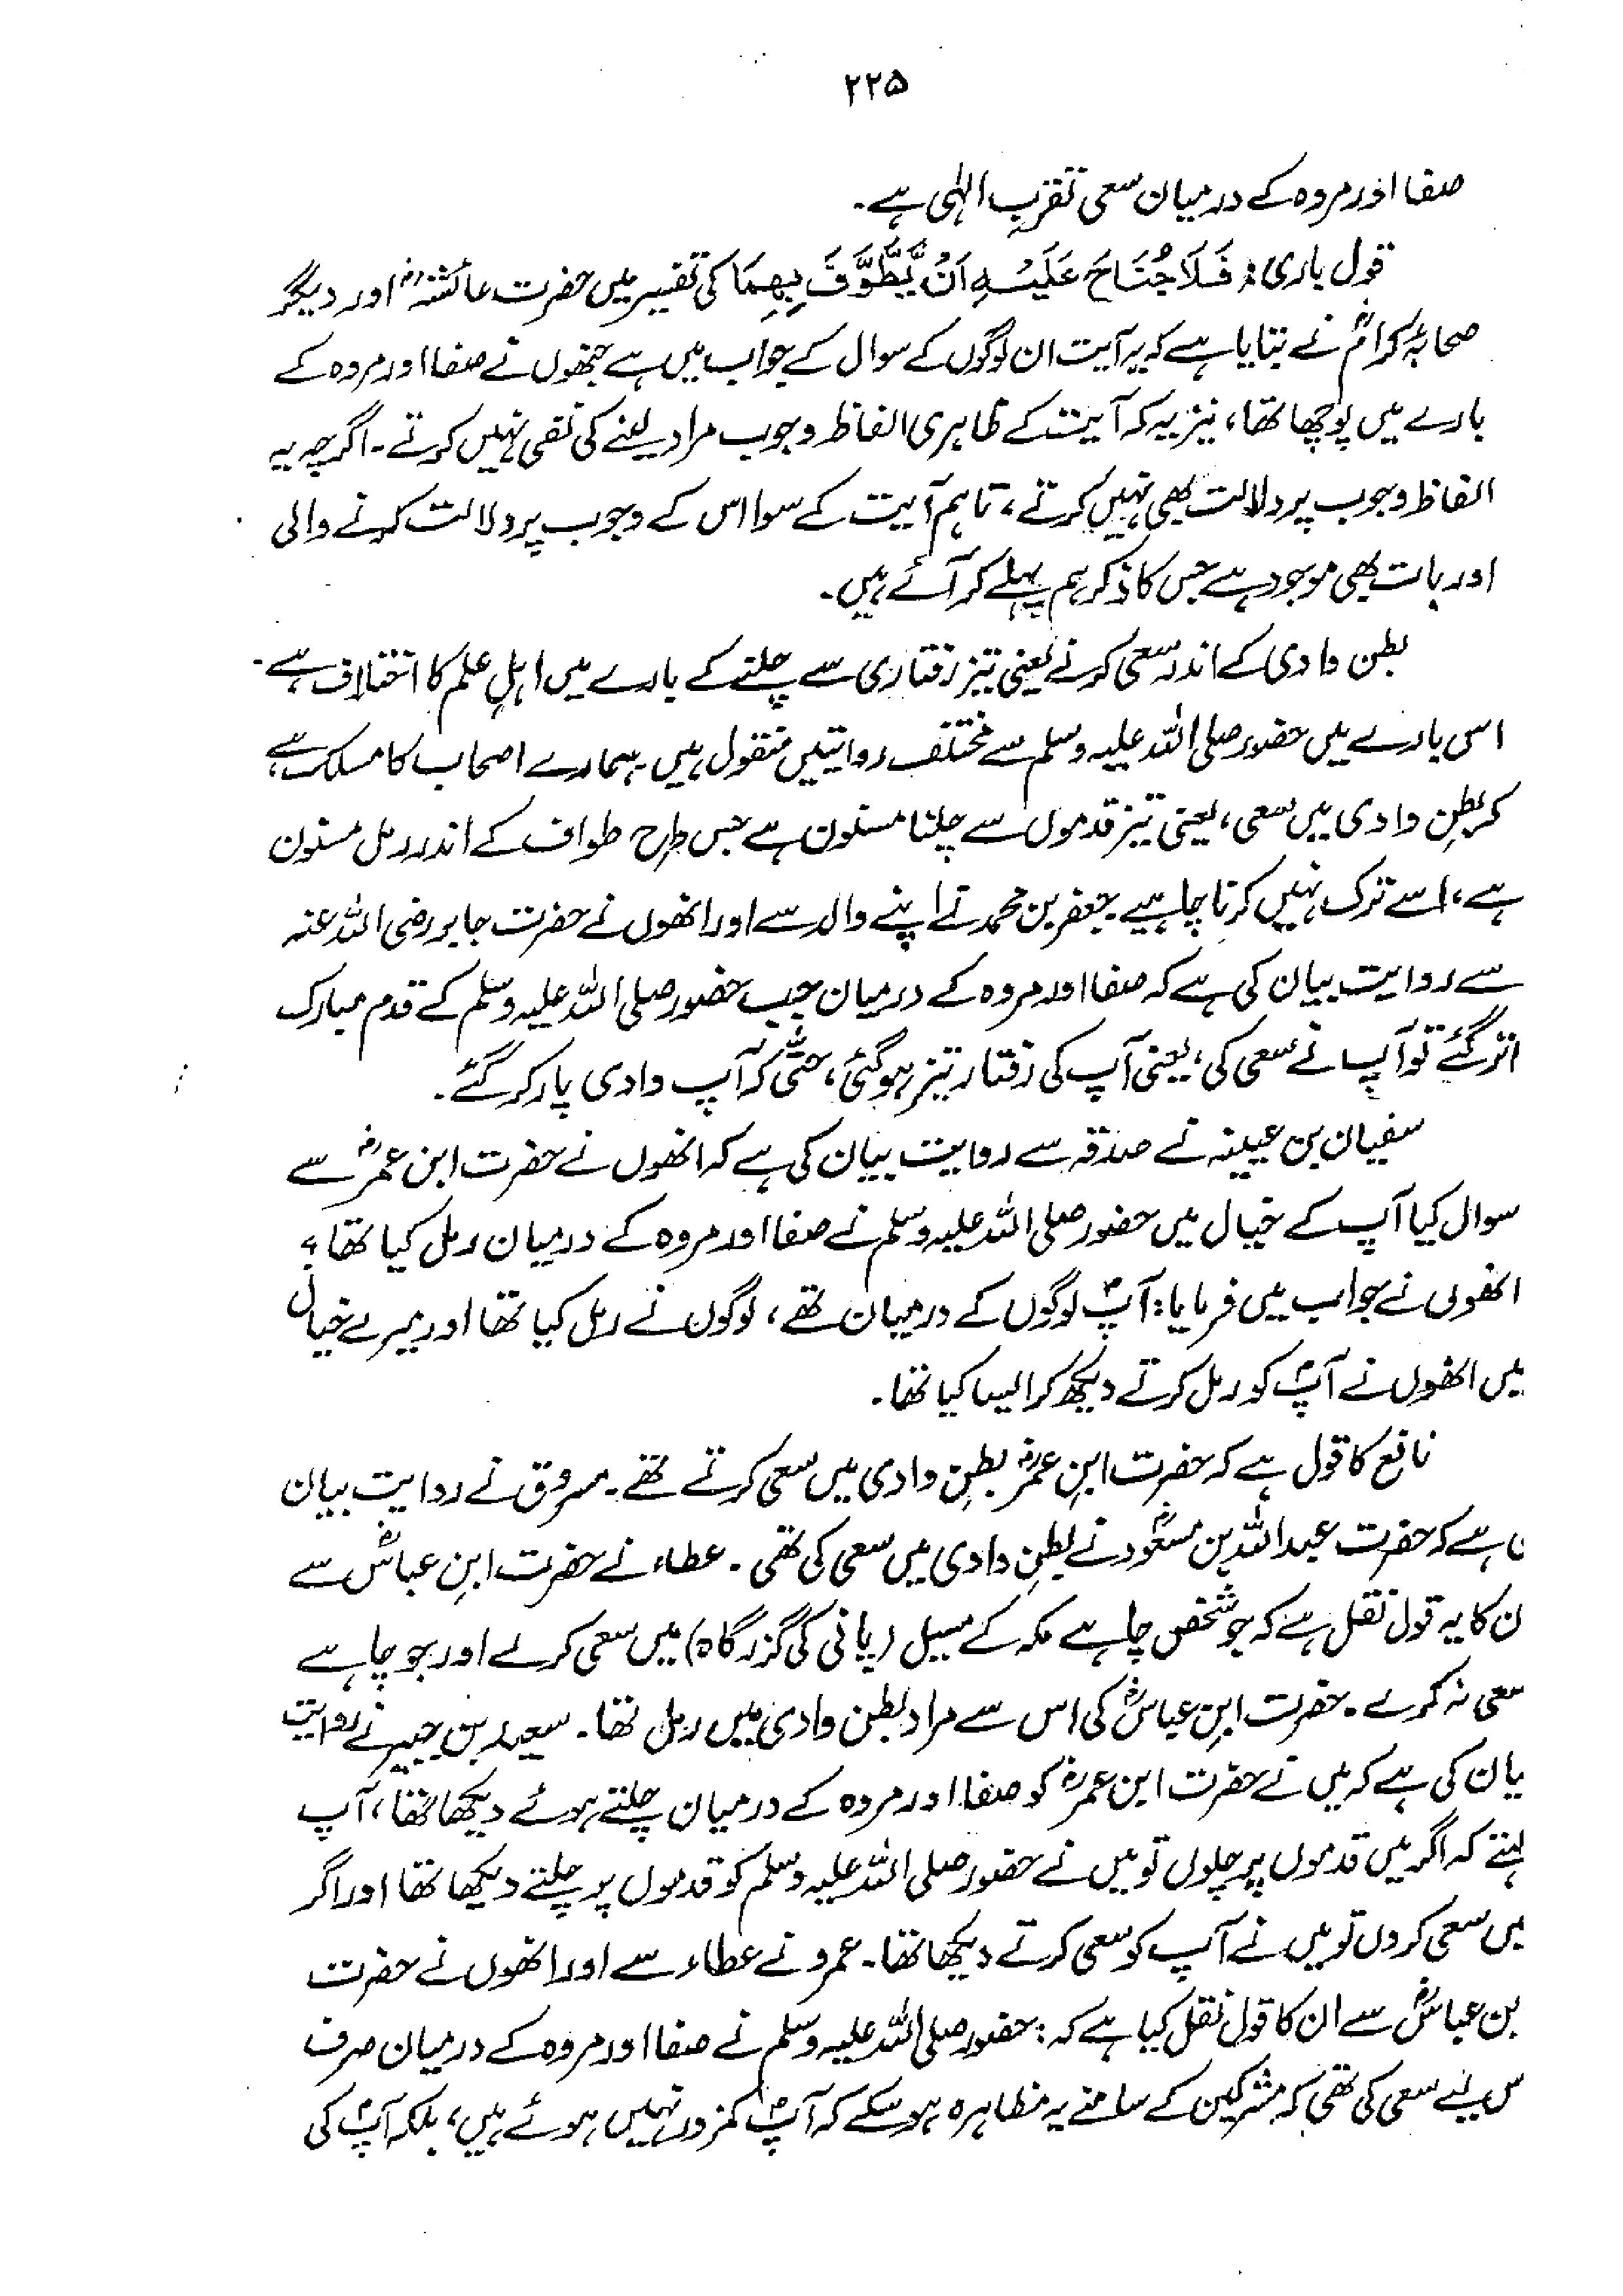 ۲۲۵
صفا اور مروہ کے درمیان سعی تقربِ الٰہی ہے۔
قول باری: فَلَا جُنَاحَ عَلَیْہِ اَنْ یَّطَّوَّفَ بِھِمَا کی تفسیر میں حضرت عائشہؓ اور دیگر
صحابۂ کرامؓ نے بتایا ہے کہ یہ آیت ان لوگوں کے سوال کے جواب میں ہے جنھوں نے صفا اور مروہ کے
بارے میں پوچھا تھا، نیز یہ کہ آیت کے ظاہری الفاظ وجوب مراد لینے کی نفی نہیں کرتے۔ اگرچہ یہ
الفاظ وجوب پر دلالت بھی نہیں کرتے، تاہم آیت کے سوا اس کے وجوب پر دلالت کرنے والی
اور بات بھی موجود ہے جس کا ذکر ہم پہلے کر آئے ہیں۔
بطن وادی کے اندر سعی کرنے یعنی تیز رفتاری سے چلنے کے بارے میں اہلِ علم کا اختلاف ہے۔
اس بارے میں حضور صلی اللہ علیہ وسلم سے مختلف روایتیں منقول ہیں۔ ہمارے اصحاب کا مسلک ہے
کہ بطنِ وادی میں سعی، یعنی تیز قدموں سے چلنا مسنون ہے جس طرح طواف کے اندر رمل مسنون
ہے، اسے ترک نہیں کرنا چاہیے۔ جعفر بن محمد نے اپنے والد سے اور انھوں نے حضرت جابر رضی اللہ عنہ
سے روایت بیان کی ہے کہ صفا اور مروہ کے درمیان جب حضور صلی اللہ علیہ وسلم کے قدم مبارک
اتر گئے تو آپ نے سعی کی، یعنی آپ کی رفتار تیز ہو گئی، حتّٰی کہ آپ وادی پار کر گئے۔
سفیان بن عیینہ نے صدقہ سے روایت بیان کی ہے کہ انھوں نے حضرت ابن عمرؓ سے
سوال کیا آپ کے خیال میں حضور صلی اللہ علیہ وسلم نے صفا اور مروہ کے درمیان رمل کیا تھا؟
انھوں نے جواب میں فرمایا: آپؐ لوگوں کے درمیان تھے، لوگوں نے رمل کیا تھا اور میرے خیال
میں انھوں نے آپؐ کو رمل کرتے دیکھ کر ایسا کیا تھا۔
نافع کا قول ہے کہ حضرت ابنِ عمرؓ بطنِ وادی میں سعی کرتے تھے۔ مسروق نے روایت بیان
ہے کہ حضرت عبداللہ بن مسعودؓ نے بطنِ وادی میں سعی کی تھی۔ عطاء نے حضرت ابنِ عباسؓ سے
ن کا یہ قول نقل ہے کہ جو شخص چاہے مکہ کے مسیل (پانی کی گزرگاہ) میں سعی کرلے اور جو چاہے
سعی نہ کرے۔ حضرت ابنِ عباسؓ کی اس سے مراد بطن وادی میں رمل تھا۔ سعید بن جبیر نے روایت
یان کی ہے کہ میں نے حضرت ابن عمرؓ کو صفا اور مروہ کے درمیان چلتے ہوئے دیکھا تھا، آپ
ہتے کہ اگر میں قدموں پر چلوں تو میں نے حضور صلی اللہ علیہ وسلم کو قدموں پر چلتے دیکھا تھا اور اگر
میں سعی کروں تو میں نے آپ کو سعی کرتے دیکھا تھا۔ عمرو نے عطاء سے اور انھوں نے حضرت
بن عباسؓ سے ان کا قول نقل کیا ہے کہ: حضور صلی اللہ علیہ وسلم نے صفا اور مروہ کے درمیان صرف
س لیے سعی کی تھی کہ مشرکین کے سامنے یہ مظاہرہ ہو سکے کہ آپؐ کمزور نہیں ہوئے ہیں، بلکہ آپؐ کی